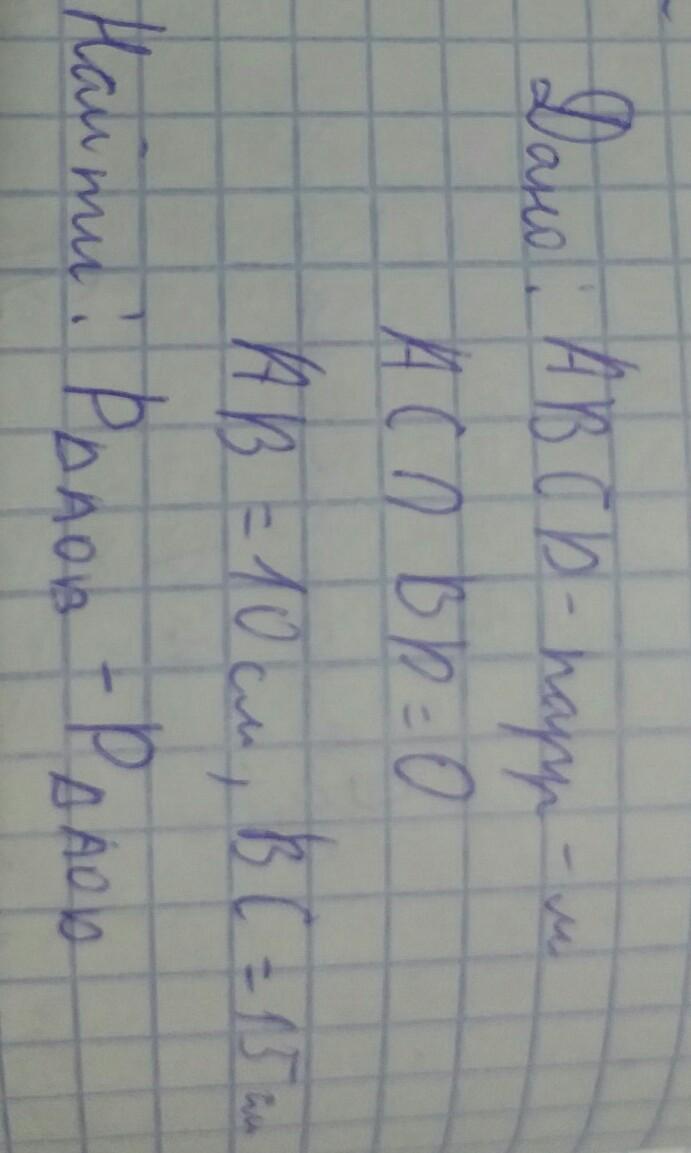 Дано: ABCD - парр - м
AC ∩ BD = O
AB = 10 см, BC = 15 см
Найти: P△AOB - P△AOD